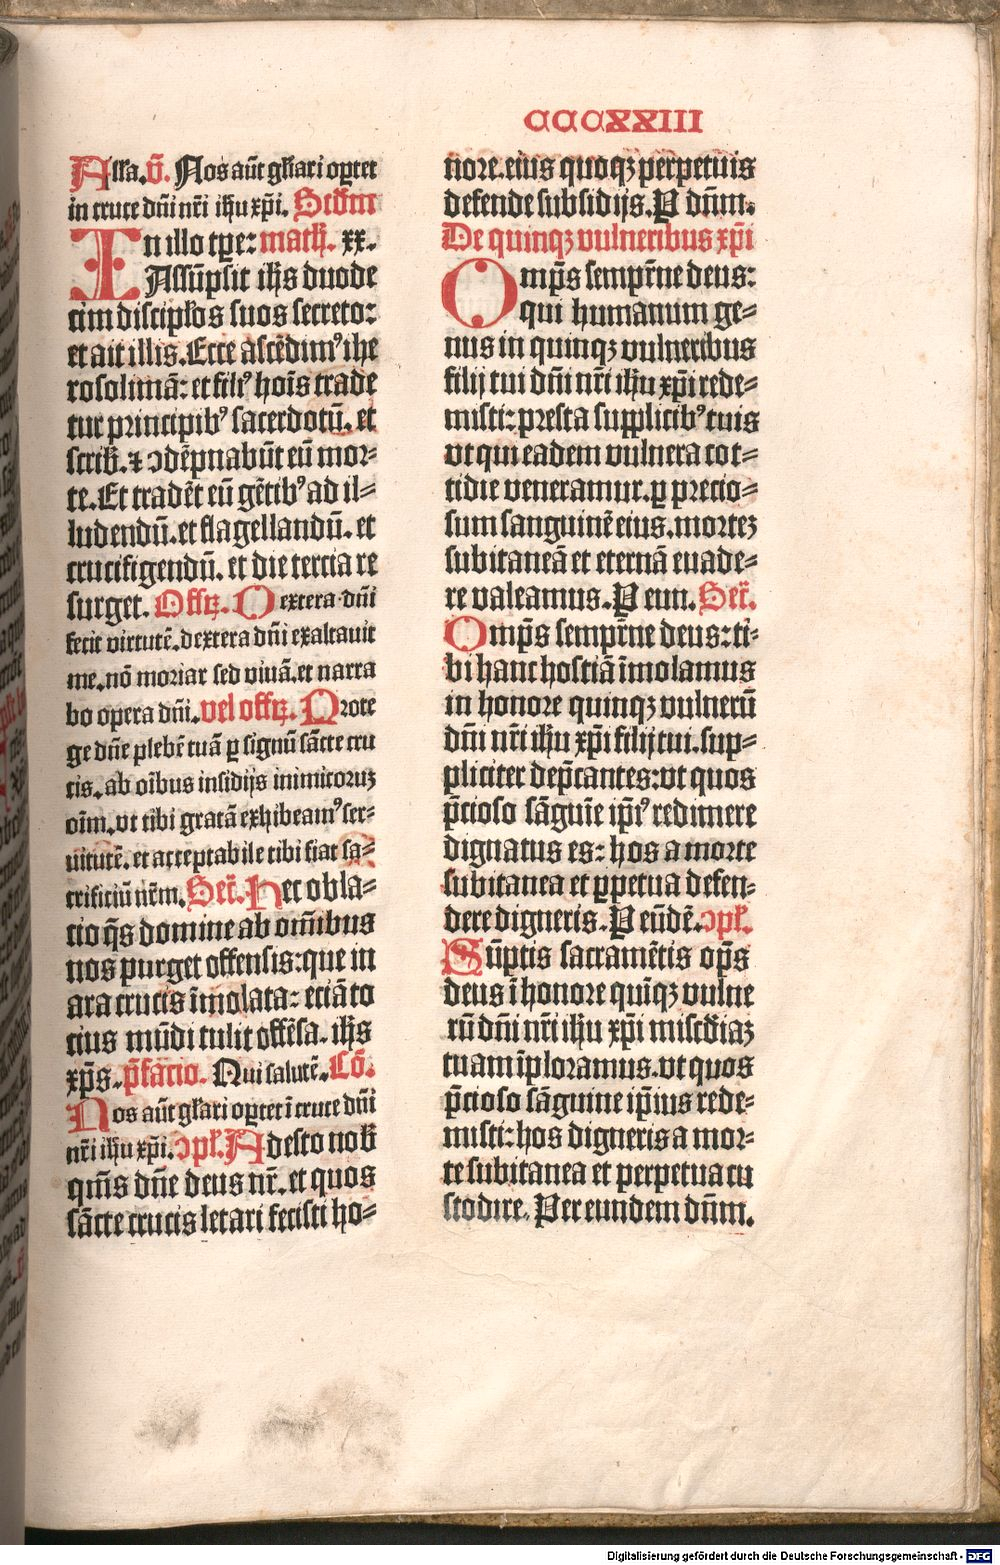 CCCXXIII
Alla. v̄. Nos aūt gl̄iari oꝑtet
in cruce dn̄i nr̄i ih̄u xp̄i. Scd̄m
In illo tꝑe: math̄. xx.
Assūpsit ih̄s duode
cim discipl̄os suos secreto:
et ait illis. Ecce ascēdimꝰ ihe
rosolimā: et filiꝰ hoīs trade
tur principibꝰ sacerdotū. et
scrib̄. ⁊ ꝯdēpnabūt eū mor⸗
te. Et tradēt eū gētibꝰ ad il⸗
ludendū. et flagellandū. et
crucifigendū. et die tercia re
surget. Offꝝ. Dextera dn̄i
fecit virtutē. dextera dn̄i exaltauit
me. nō moriar sed viuā. et narra
bo opera dn̄i. vel offꝝ. Prote
ge dn̄e plebē tuā ꝑ signū sāctc cru
cis. ab oībus insidijs inimicoruꝫ
oīm. vt tibi gratā exhibeamꝰ ser⸗
uitutē. et acceptabile tibi fiat sa⸗
crificiū nr̄m. Secr̄. Hec obla⸗
cio q̄s domine ab om̄ibus
nos purget offensis: que in
ara crucis īmolata: eciā to
cius mūdi tulit offēsa. ih̄s
xp̄s. p̄facio. Qui salutē. Cō.
Nos aūt gl̄iari oꝑtet ī cruce dn̄i
nr̄i ih̄u xp̄i. ꝯpl̄. Adesto nob̄
qm̄s dn̄e deus nr̄. et quos
sācte crucis letari fecisti ho⸗
nore. eius quoqꝫ perpetuis
defende subsidijs. P dn̄m.
De quinqꝫ vulneribus xp̄i
Omp̄s semp̄rne deus:
qui humanum ge⸗
nus in quinqꝫ vulneribus
filij tui dn̄i nr̄i ih̄u xp̄i rede⸗
misti: presta supplicibꝰ tuis
vt qui eadem vulnera cot⸗
tidie veneramur. ꝑ precio⸗
sum sanguinē eius. morteꝫ
subitaneā et eternā euade⸗
re valeamus. P eun. Secr̄.
Omp̄s semp̄rne deus: ti⸗
bi hanc hostiā īmolamus
in honore quinqꝫ vulnerū
dn̄i nr̄i ih̄u xp̄i filij tui. sup⸗
pliciter dep̄cantes: vt quos
p̄cioso sāguīe ip̄iꝰ redimere
dignatus es: hos a morte
subitanea et ꝑpetua defen⸗
dere digneris. P eūdē. ꝯpl̄.
Sūptis sacramētis op̄s
deus ī honore quīqꝫ vulne
rū dn̄i nr̄i ih̄u xp̄i misc̄diaꝫ
tuam īploramus. vt quos
p̄cioso sāguine ip̄ius rede⸗
misti: hos digneris a mor⸗
te subitanea et perpetua cu
stodire. Per eundem dn̄m.
Digitalisierung gefördert durch die Deutsche Forschungsgemeinschaft - DFG